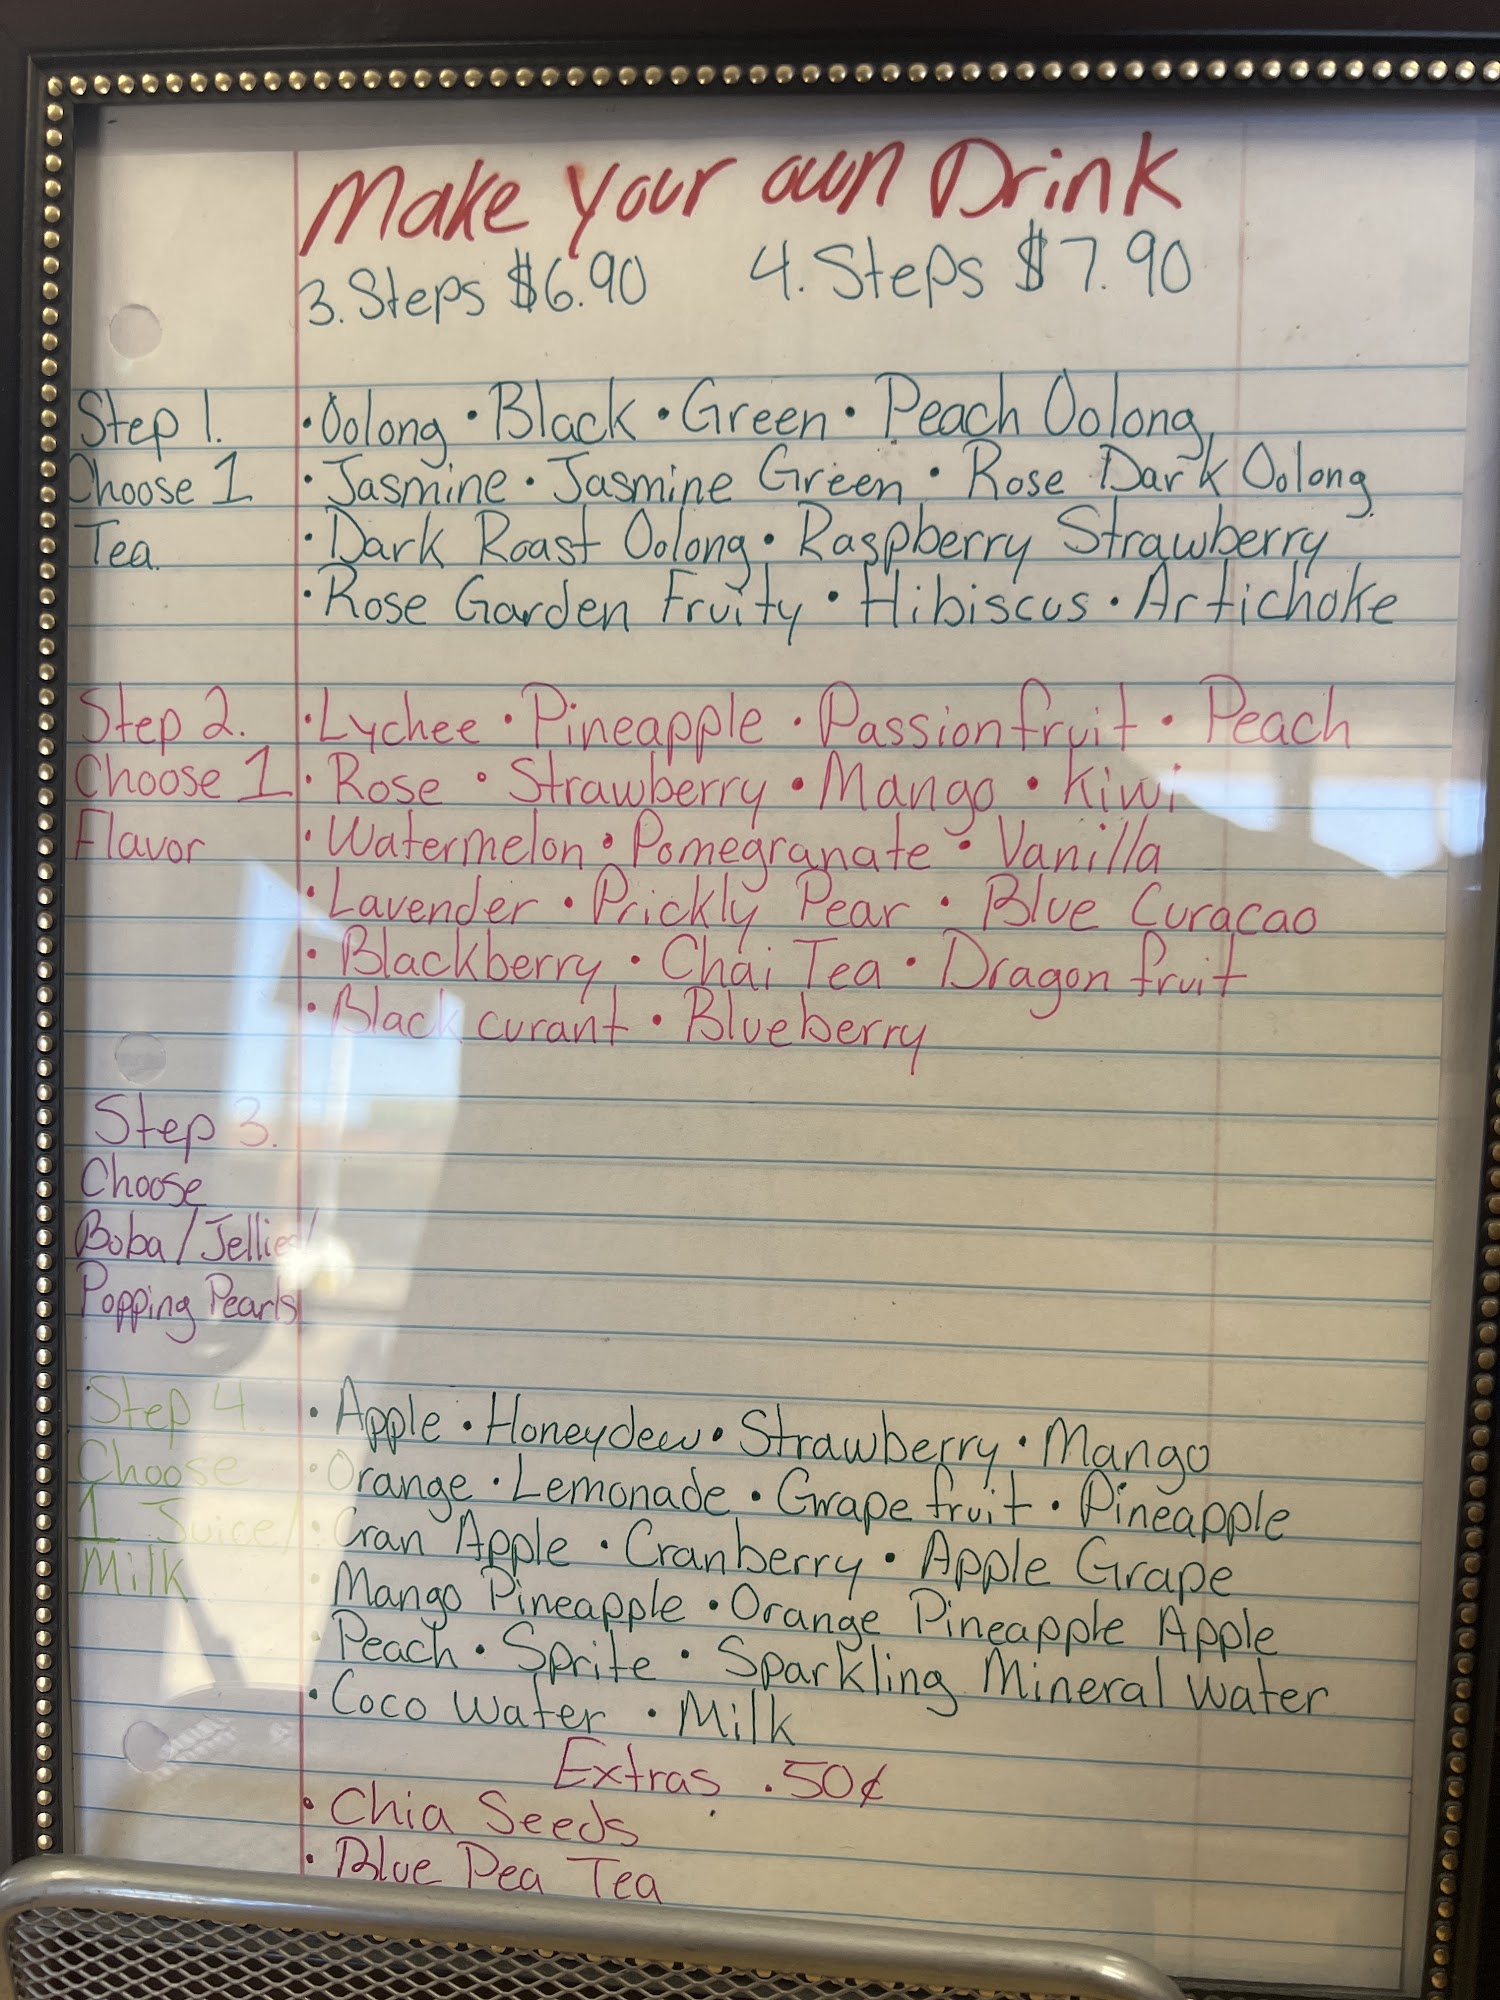 Make Your own Drink
3. Steps $6.90 4. Steps $7.90
Step 1. • Oolong • Black • Green • Peach Oolong
Choose 1 • Jasmine • Jasmine Green • Rose Dark Oolong
Tea • Dark Roast Oolong • Raspberry Strawberry
• Rose Garden Fruity • Hibiscus • Artichoke
Step 2. • Lychee • Pineapple • Passionfruit • Peach
Choose 1 • Rose • Strawberry • Mango • Kiwi
Flavor • Watermelon • Pomegranate • Vanilla
• Lavender • Prickly Pear • Blue Curacao
• Blackberry • Chai Tea • Dragon fruit
• Black curant • Blueberry
Step 3.
Choose
Boba/Jellies/
Popping Pearls
Step 4. • Apple • Honeydew • Strawberry • Mango
Choose • Orange • Lemonade • Grapefruit • Pineapple
1 Juice/ • Cran Apple • Cranberry • Apple Grape
Milk • Mango Pineapple • Orange Pineapple Apple
• Peach • Sprite • Sparkling Mineral Water
• Coco Water • Milk
Extras .50¢
• Chia Seeds
• Blue Pea Tea